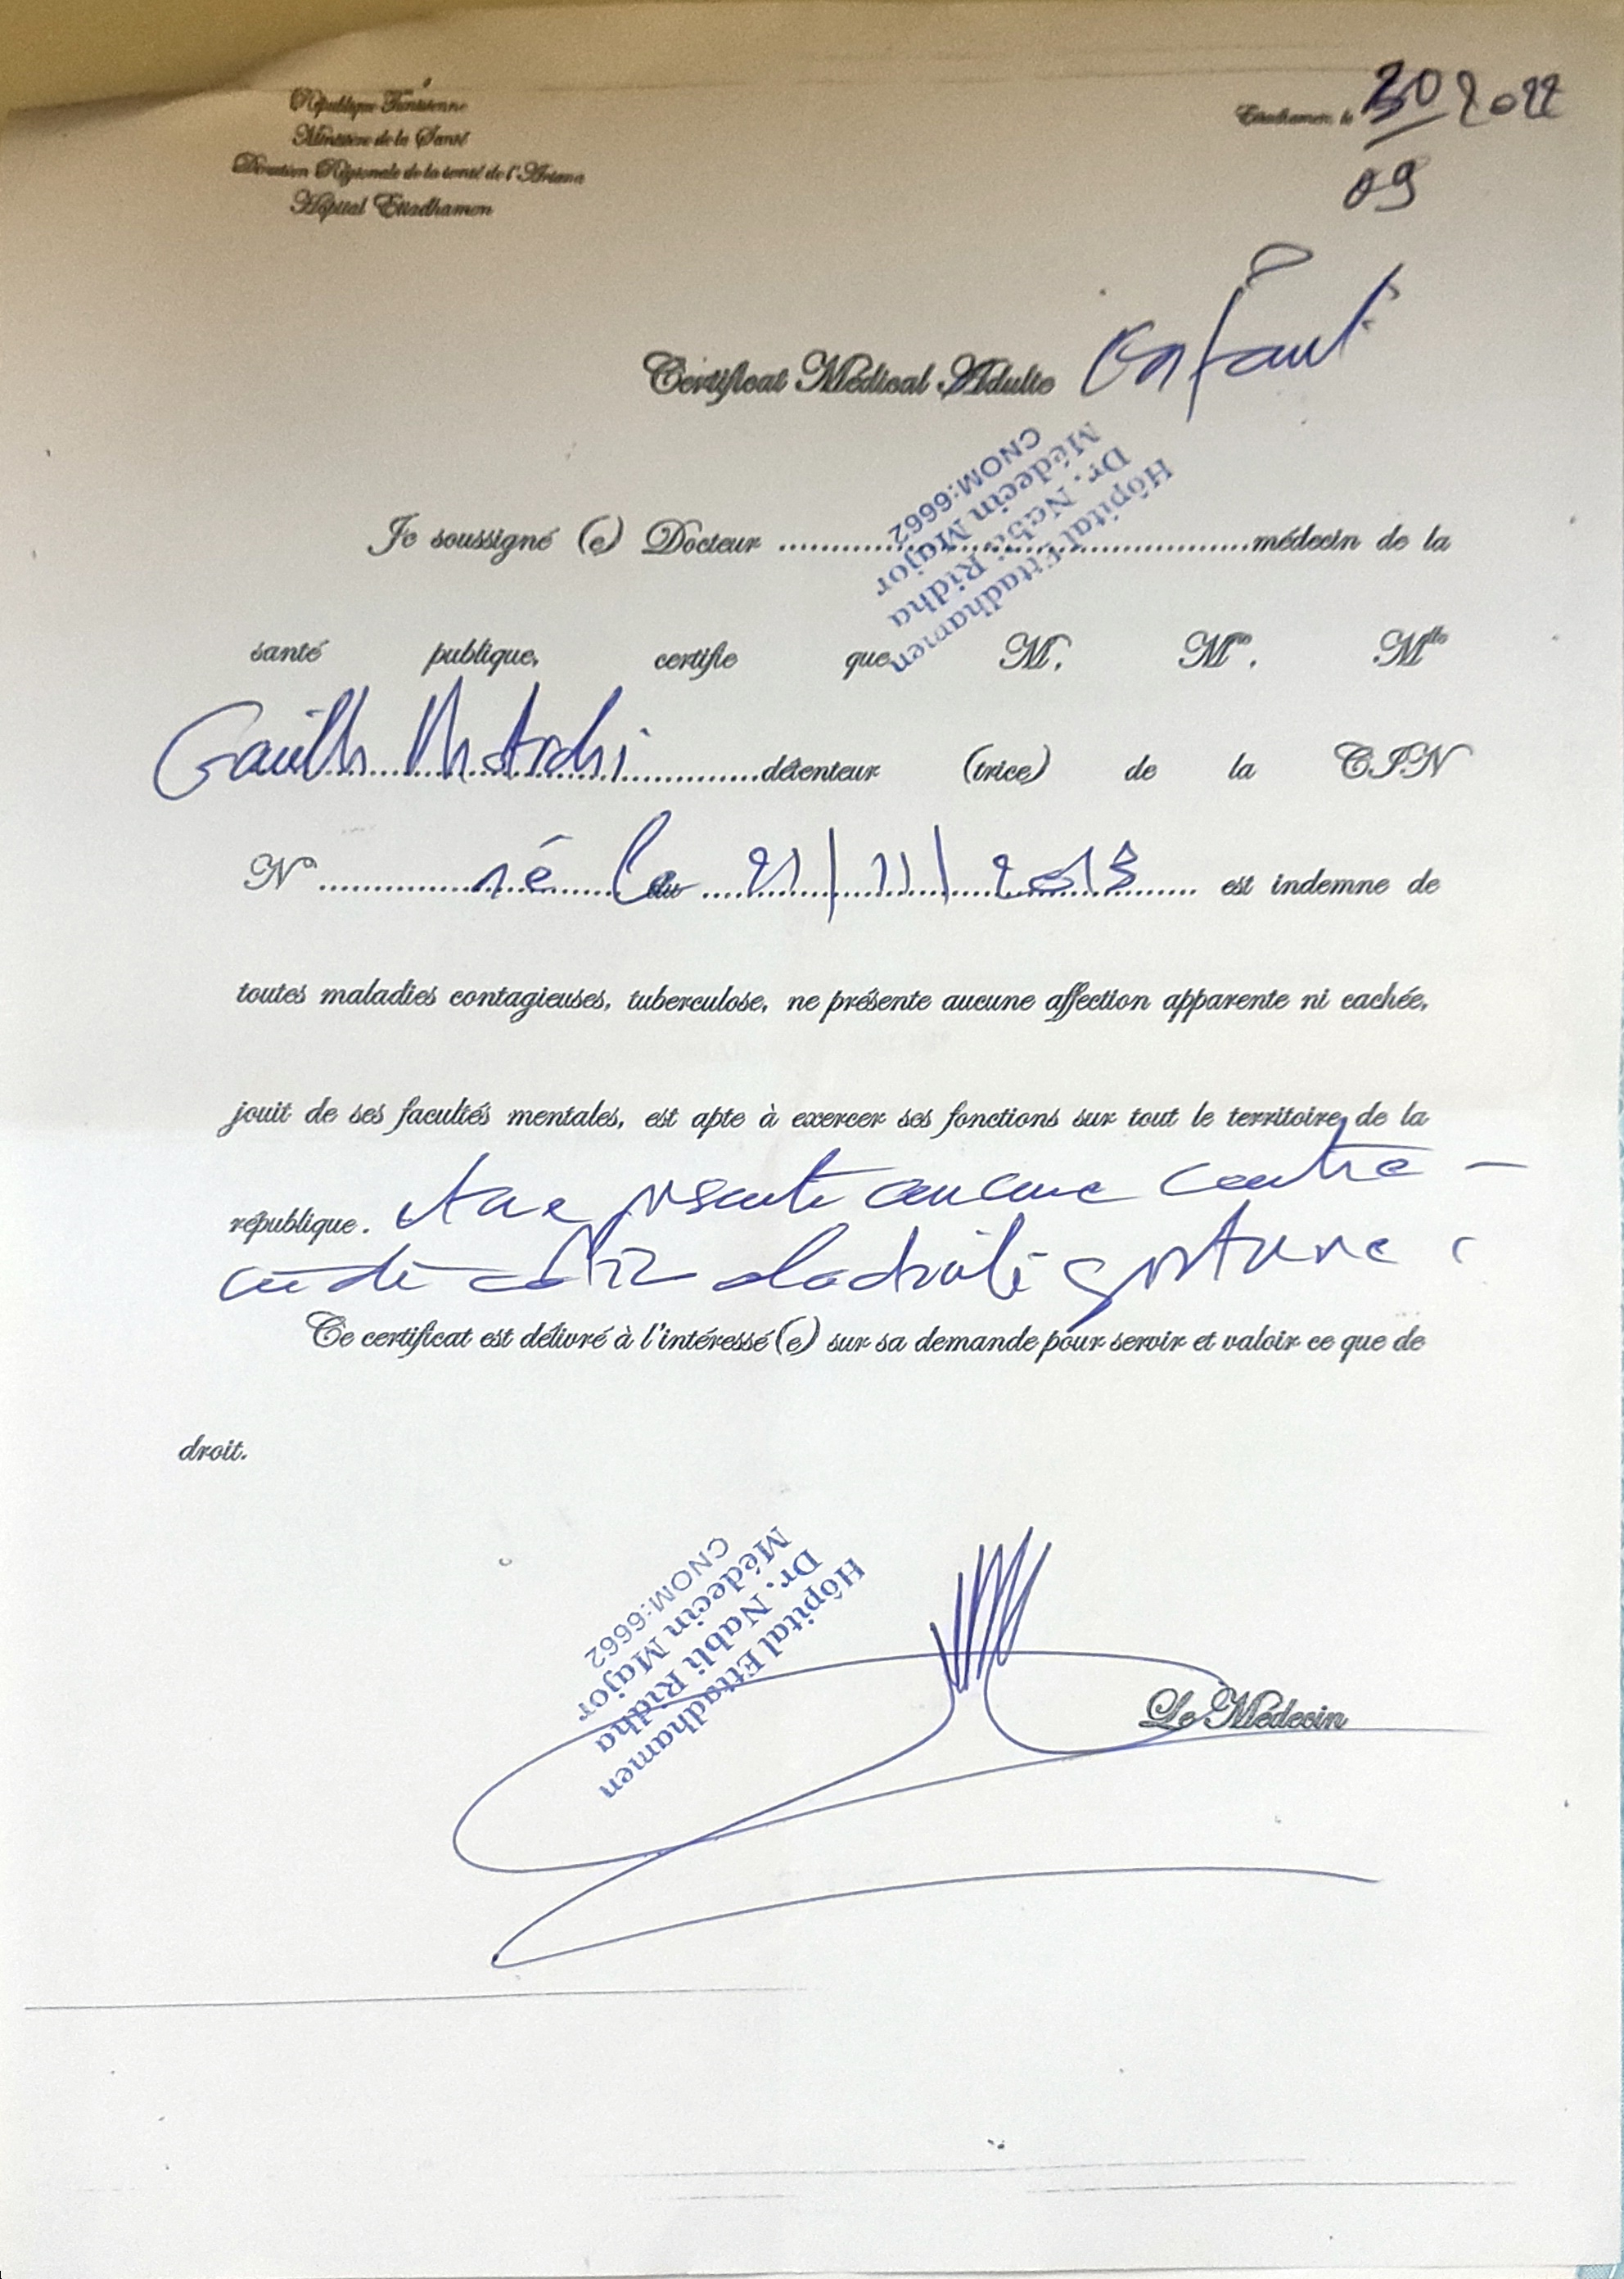 République Tunisienne
Ministère de la Santé
Direction Régionale de la santé de l'Ariana
Hôpital Ettadhamen
Ettadhamen, le 30 2022
09
Certificat Médical Adulte enfant
Hôpital Ettadhamen
Dr. Nabli Ridha
Médecin Major
CNOM:6662
Je soussigné (e) Docteur ........................................médecin de la
santé publique, certifie que M. Mme. Mlle
..........................détenteur (trice) de la CIN
N° .................né le du .... 21/11/2013 ...... est indemne de
toutes maladies contagieuses, tuberculose, ne présente aucune affection apparente ni cachée,
jouit de ses facultés mentales, est apte à exercer ses fonctions sur tout le territoire de la
république. et ne présente aucune contre -
l'activité sportive
Ce certificat est délivré à l'intéressé (e) sur sa demande pour servir et valoir ce que de
droit.
Hôpital Ettadhamen
Dr. Nabli Ridha
Médecin Major
CNOM:6662
Le Médecin